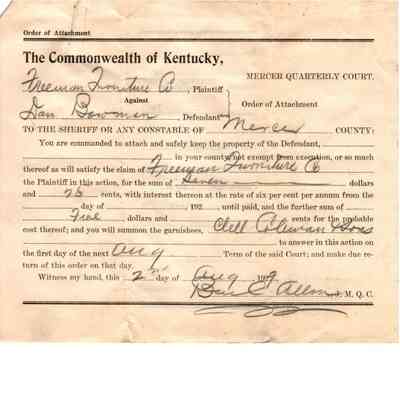 Order of Attachment
The Commonwealth of Kentucky,
MERCER QUARTERLY COURT.
Freeman Furniture Co, Plaintiff
Against
Order of Attachment
Dan Bowman, Defendant
TO THE SHERIFF OR ANY CONSTABLE OF Mercer COUNTY:
You are commanded to attach and safely keep the property of the Defendant,
in your county not exempt from execution, or so much
thereof as will satisfy the claim of Freeman Furniture Co
the Plaintiff in this action, for the sum of Seven dollars
and 25 cents, with interest thereon at the rate of six per cent per annum from the
day of , 192 until paid, and the further sum of
Five dollars and cents for the probable
cost thereof; and you will summon the garnishees,
to answer in this action on
the first day of the next Aug Term of the said Court; and make due re-
turn of this order on that day.
Witness my hand, this 2 day of Aug 19
Ben C Allen J. M. Q. C.